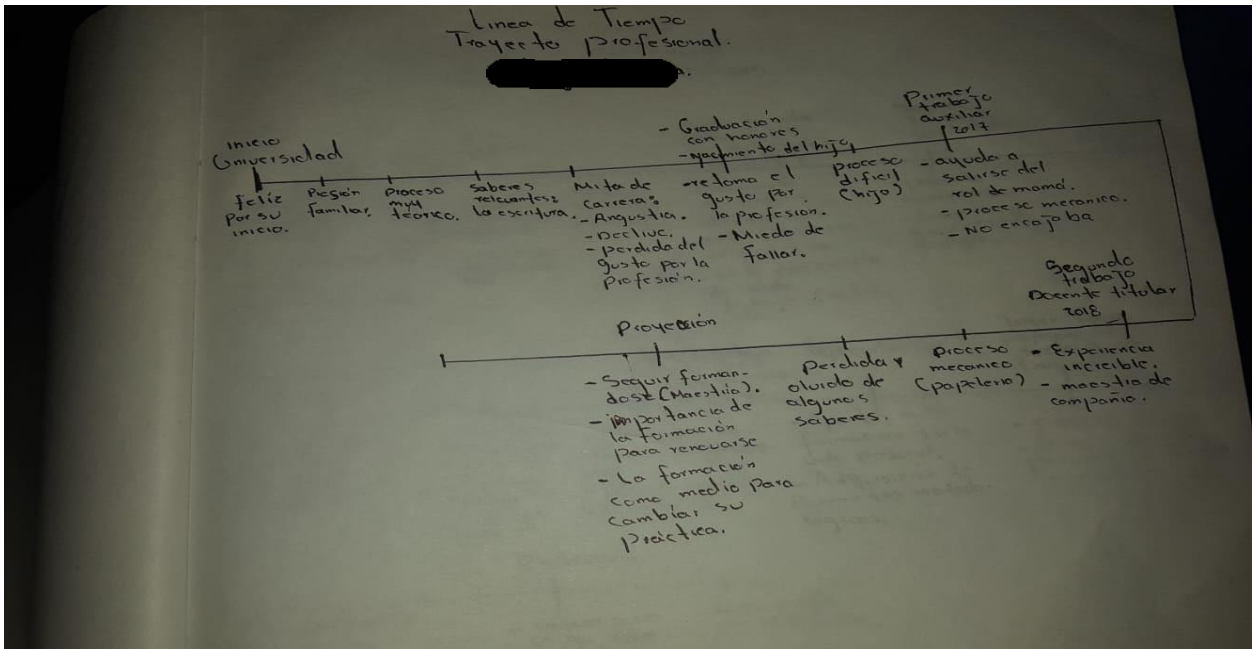 Linea de Tiempo
Trayecto profesional.
inicio
Universidad
feliz
por su
inicio.
Presión
familiar.
Proceso
muy
teórico.
saberes
relevantes:
la escritura.
Mita de
carrera:
- Angustia.
- Declive.
- perdida del
gusto por la
profesión.
- Graduación
con honores
- nacimiento del hijo
- retoma el
gusto por
la profesion.
- Miedo de
fallar.
proceso
dificil
(hijo)
Primer
trabajo
auxiliar
2017
- ayudo a
salirse del
rol de mamá.
- procese mecanico.
- No encajaba
Segundo
trabajo
Docente titular
2018
- Experiencia
increible.
- maestra de
compañia.
proceso
mecanico
(papeleria)
Perdida y
olvido de
algunos
saberes.
Proyección
- Seguir forman-
dose (Maestria).
- importancia de
la formación
para renovarse
- La formación
como medio para
cambiar su
práctica.